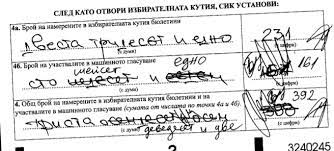 СЛЕД КАТО ОТВОРИ ИЗБИРАТЕЛНАТА КУТИЯ, СИК УСТАНОВИ:
4а. Брой на намерените в избирателната кутия бюлетини
двеста тридесет и едно 231
(с думи) (с цифри)
4б. Брой на участвалите в машинното гласуване
шейсет едно
сто и 161
(с думи) (с цифри)
4. Общ брой на намерените в избирателната кутия бюлетини и на
участвалите в машинното гласуване (сумата от числата по точки 4а и 4б)
392
триста
(с думи) деведесет и две (с цифри)
3240245